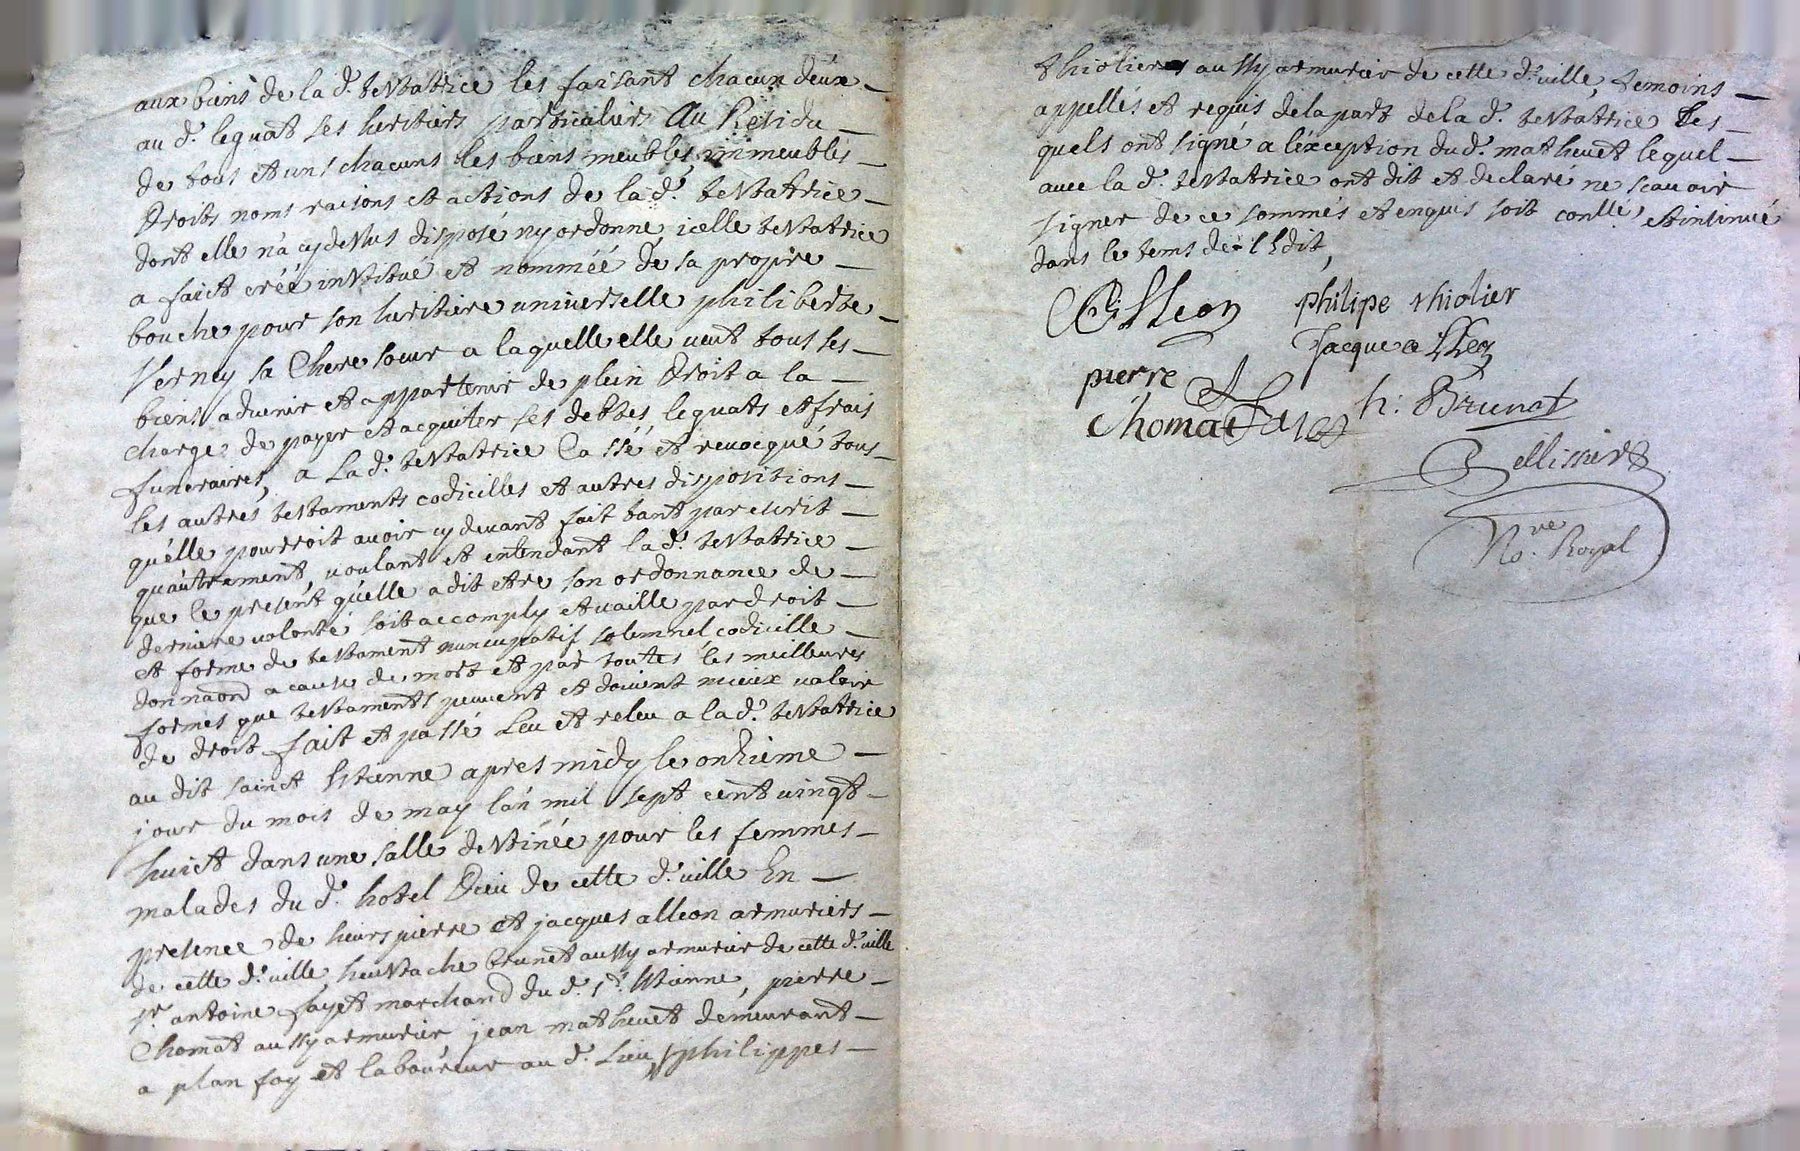 aux biens de la d. testatrice les faisant chacun deux
au d. leguat ses heritiers particuliers Au Residu
de tous et uns chacuns les biens meubles, immeubles
Droits noms raisons et actions de la d. testatrice
dont elle n'a cy dessus disposé ny ordonne icelle testatrice
a faict créé institué et nommée de sa propre
bouche pour son heritiere universelle philiberte
Verney sa Chere soeur a laquelle elle veut tous ses
biens aduenir et appartenir de plein Droit a la
charge de payer et acquiter ses debtes, leguats et frais
funeraires, a la d. testatrice Cassé et reuocqué tous
les autres testaments codicilles et autres dispositions
qu'elle pourroit auoir cy deuant fait tant par escrit
qu'autrement, uoulant et entendant la d. testatrice
que le present qu'elle a dit etre son ordonnance de
derniere uolonté soit accomply et uaille par droit
et forme de testament nuncupatif solemnel codicille
donnaond a cause de mort et par toutes les meilleures
formes que testaments peuuent et doiuent mieux ualoir
de droit fait et passé Leu et releu a la d. testatrice
au dit sainct Estienne apres midy le onzieme
jour du mois de may l'an mil sept cent uingt
huict dans une salle destinée pour les femmes
malades du d. hotel Dieu de cette d. uille En
presence de sieurs pierre et jacques alleon armuriers
de cette d. uille, heustache brunet aussy armurier de cette d. uille
sr. antoine fayet marchand du d. st. Estienne, pierre
Chomat aussy armurier, jean matheuet demeurant
a plan foy et laboureur au d. Lieu, philippes
thiolier aussy armurier de cette d. uille, temoins
appellés et requis de la part de la d. testatrice Les
quels ont signé a l'exception du d. matheuet lequel
auec la d. testatrice ont dit et declaré ne scauoir
signer de ce sommés et enquis soit conllé et insinué
dans le tems de l'Edit,
philipe thiolier
Jacque alleon
pierre
Chomat Fayet h: Brunat
Pellissier
Nore. Royal